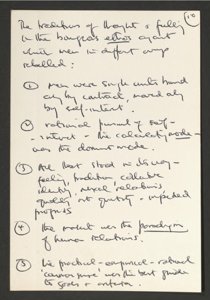 10
The traditions of thought & feeling
in the bourgeois ethos against
which men in different ways
rebelled:
① Men were single units bound
only by contract, moved only
by self-interest.
② rational pursuit of self-
interest - the calculating mode -
was the dominant mode.
③ All that stood in its way -
feeling, tradition, collective
identity, sexual relations
quality not quantity - impeded
progress
④ The market was the paradigm
of human relations.
⑤ The practical - empirical - rational
'common sense' was the best guide
to goals +